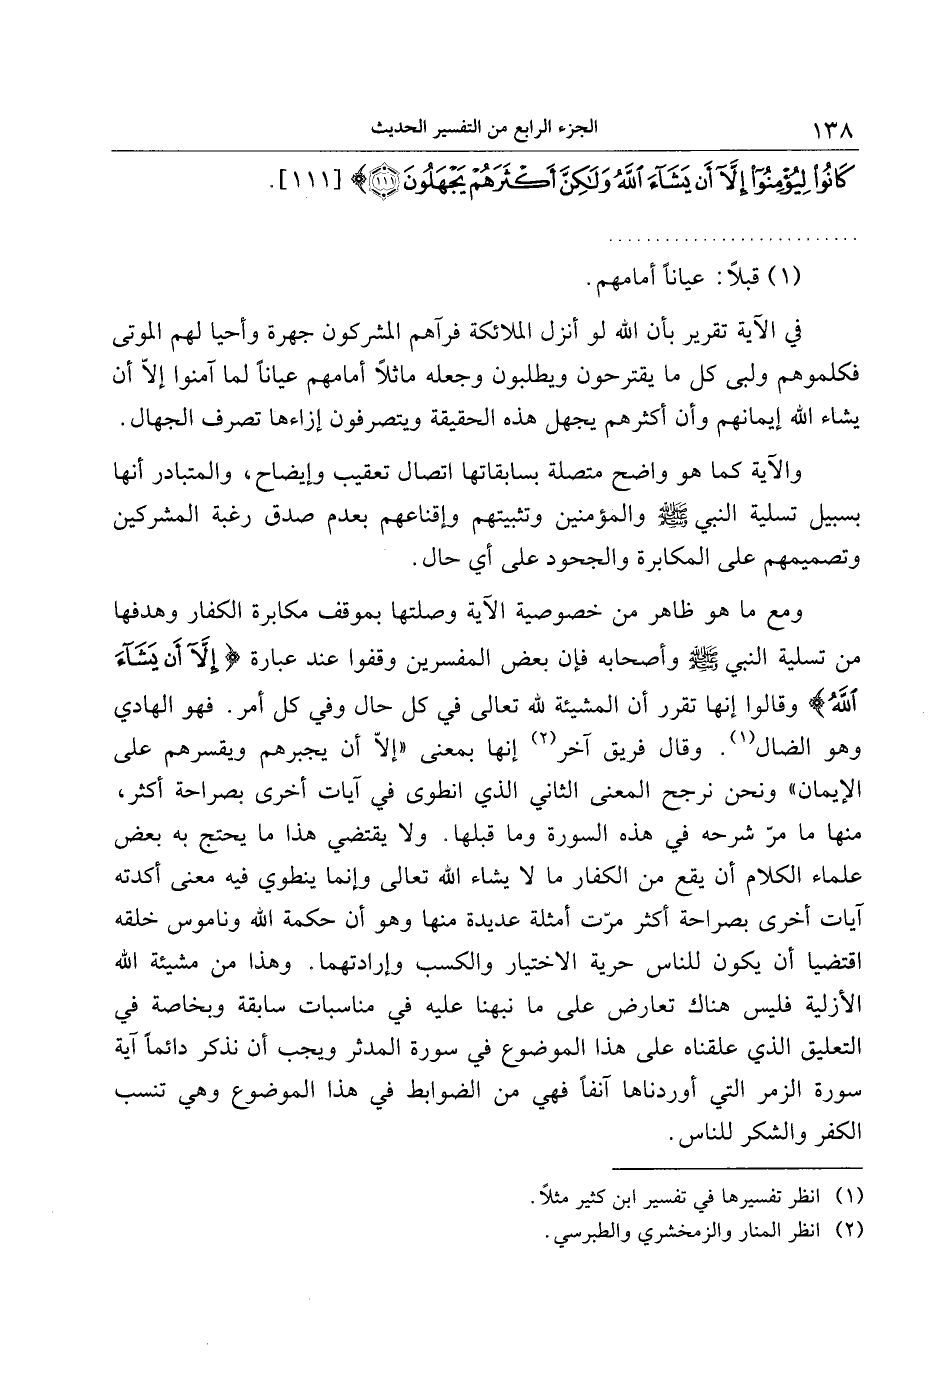 ١٣٨ الجزء الرابع من التفسير الحديث
كَانُواْ لِيُؤْمِنُوٓاْ إِلَّآ أَن يَشَآءَ ٱللَّهُ وَلَٰكِنَّ أَكْثَرَهُمْ يَجْهَلُونَ ﴿١١١﴾﴾ [١١١].
..........................
(١) قبلاً: عياناً أمامهم.
في الآية تقرير بأن الله لو أنزل الملائكة فرآهم المشركون جهرة وأحيا لهم الموتى
فكلموهم ولبى كل ما يقترحون ويطلبون وجعله ماثلاً أمامهم عياناً لما آمنوا إلاّ أن
يشاء الله إيمانهم وأن أكثرهم يجهل هذه الحقيقة ويتصرفون إزاءها تصرف الجهال.
والآية كما هو واضح متصلة بسابقاتها اتصال تعقيب وإيضاح، والمتبادر أنها
بسبيل تسلية النبي ﷺ والمؤمنين وتثبيتهم وإقناعهم بعدم صدق رغبة المشركين
وتصميمهم على المكابرة والجحود على أي حال.
ومع ما هو ظاهر من خصوصية الآية وصلتها بموقف مكابرة الكفار وهدفها
من تسلية النبي ﷺ وأصحابه فإن بعض المفسرين وقفوا عند عبارة ﴿إِلَّآ أَن يَشَآءَ
ٱللَّهُ﴾ وقالوا إنها تقرر أن المشيئة لله تعالى في كل حال وفي كل أمر. فهو الهادي
وهو الضال(١). وقال فريق آخر(٢) إنها بمعنى «إلاّ أن يجبرهم ويقسرهم على
الإيمان» ونحن نرجح المعنى الثاني الذي انطوى في آيات أخرى بصراحة أكثر،
منها ما مرّ شرحه في هذه السورة وما قبلها. ولا يقتضي هذا ما يحتج به بعض
علماء الكلام أن يقع من الكفار ما لا يشاء الله تعالى وإنما ينطوي فيه معنى أكدته
آيات أخرى بصراحة أكثر مرّت أمثلة عديدة منها وهو أن حكمة الله وناموس خلقه
اقتضيا أن يكون للناس حرية الاختيار والكسب وإرادتهما. وهذا من مشيئة الله
الأزلية فليس هناك تعارض على ما نبهنا عليه في مناسبات سابقة وبخاصة في
التعليق الذي علقناه على هذا الموضوع في سورة المدثر ويجب أن نذكر دائماً آية
سورة الزمر التي أوردناها آنفاً فهي من الضوابط في هذا الموضوع وهي تنسب
الكفر والشكر للناس.
(١) انظر تفسيرها في تفسير ابن كثير مثلاً.
(٢) انظر المنار والزمخشري والطبرسي.